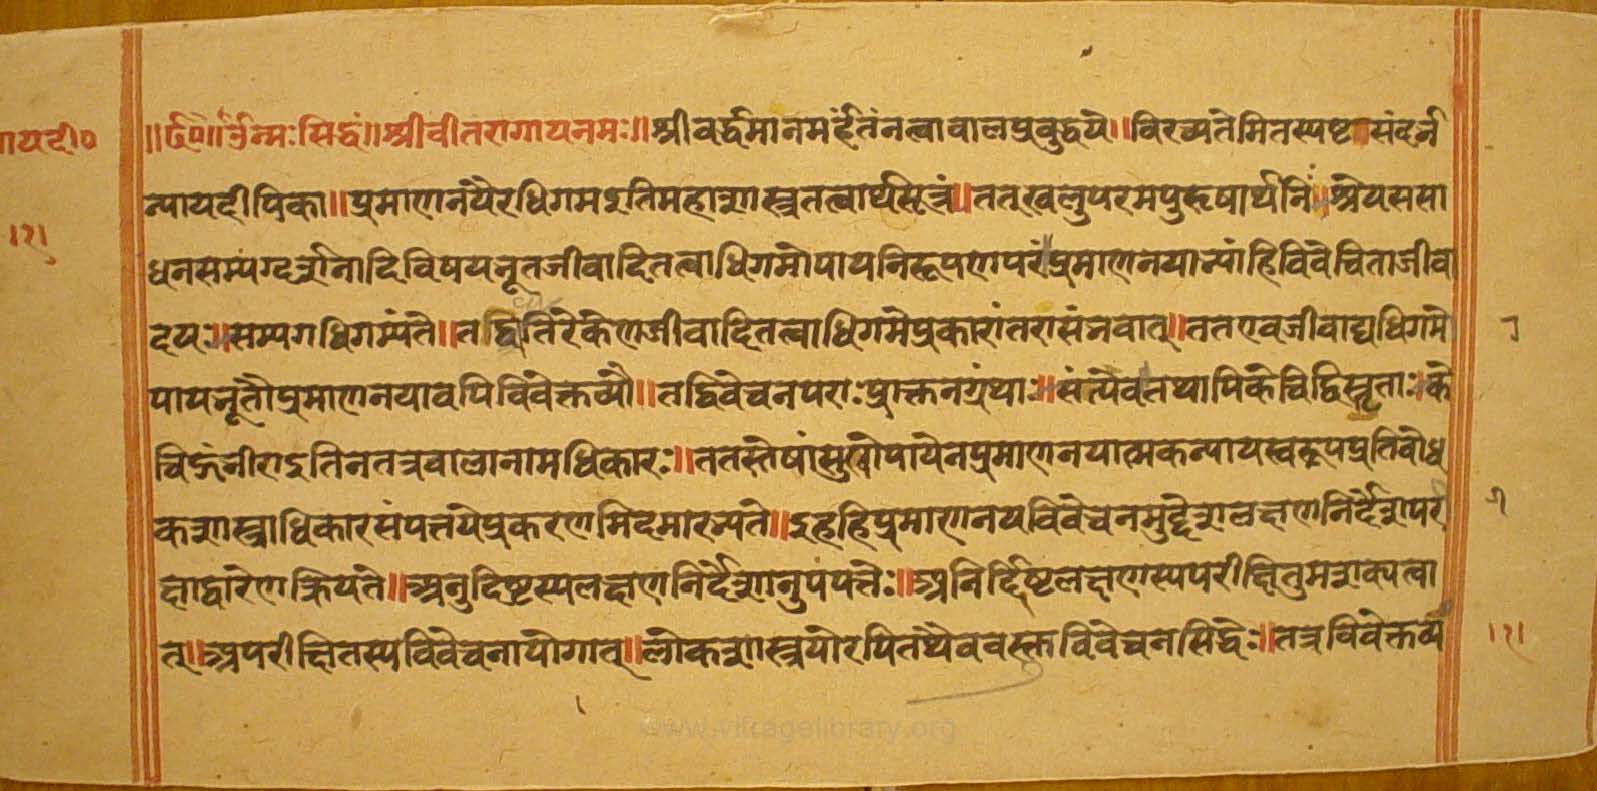 ॥ॐ॥र्ॐनमःसिद्धं॥श्रीवीतरागायनमः॥श्रीवर्द्धमानमर्हंतंनत्वाबालप्रबुद्धये॥विरच्यतेमितस्पष्टसंदर्भ
न्यायदीपिका॥प्रमाणनयैरधिगमइतिमहाशास्त्रतत्वार्थसूत्रं॥तत्खलुपरमपुरुषार्थनिःश्रेयससा
धनसम्यग्दर्शनादिविषयभूतजीवादितत्वाधिगमोपायनिरूपणपरंप्रमाणनयाभ्यांहिविवेचिताजीवा
दयः॥सम्यगधिगम्यंते॥तद्व्यतिरेकेणजीवादितत्वाधिगमेप्रकारांतरासंभवात्॥ततएवजीवाद्यधिगमो
पायभूतौप्रमाणनयावपिविवेक्तव्यौ॥तद्विवेचनपराःप्राक्तनग्रंथाः॥संत्येवतथापिकेचिद्विस्तृताःके
चिद्गंभीराइतिनतत्रबालानामधिकारः॥ततस्तेषांसुखोपायेनप्रमाणनयात्मकन्यायस्वरूपप्रतिबोध
कशास्त्राधिकारसंपत्तयेप्रकरणमिदमारभ्यते॥इहहिप्रमाणनयविवेचनमुद्देशलक्षणनिर्देशपरी
क्षाद्वारेणक्रियते॥अनुदिष्टस्यलक्षणनिर्देशानुपपत्तेः॥अनिर्दिष्टलक्षणस्यपरीक्षितुमशक्यत्वा
त्॥अपरीक्षितस्यविवेचनायोगात्॥लोकशास्त्रयोरपितथैववस्तुविवेचनसिद्धेः॥तत्रविवेक्तव्य
ायदी०
।१।
।१।
www.vitragelibrary.org